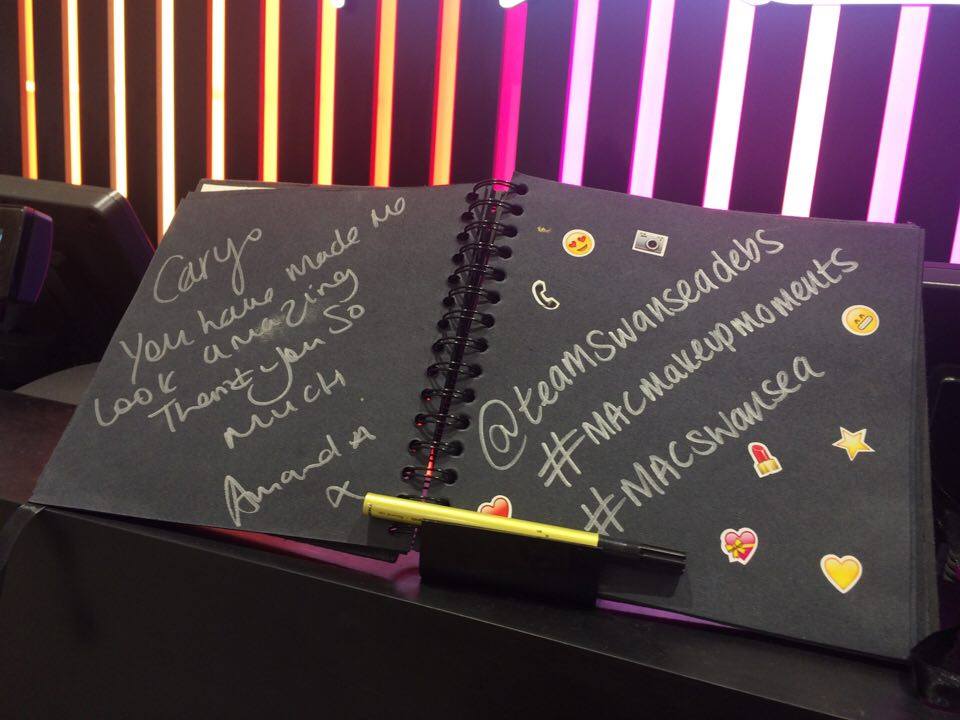 Carys
You have made me
look amazing
Thank you so
much
Amanda
x
@teamswanseadebs
#MACmakeupmoments
#MACSwansea